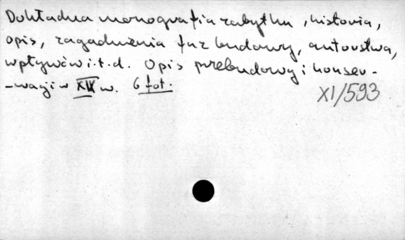 Dokładna monografia zabytku, historia,
opis, zagadnienia faz budowy, autorstwa,
wpływów i.t.d. Opis przebudowy i konser-
-wacji w XIX w. 6 fot.
XI/593